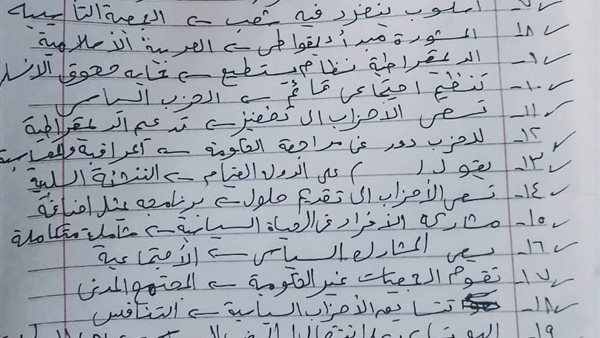 ٧- أسلوب ينفرد فيه شعب ← الجمعية التأسيسية
٨- المشورة مبدأ ديمقراطي ← العربية الإسلامية
٩- الديمقراطية نظام يستطيع ← حماية حقوق الإنسان
١٠- تنظيم اجتماعي قائم ← الحزب السياسي
١١- تسعى الأحزاب إلى تحفيز ← تدعيم الديمقراطية
١٢- للحزب دور في مراجعة الحكومة ← المراقبة والمحاسبة
١٣- يقول ( ) على الدول القيام ← التنشئة السلبية
١٤- تسعى الأحزاب إلى تقديم حلول ← برنامجه يمثل إضافة
١٥- مشاركة الأفراد في الحياة السياسية ← شاملة متكاملة
١٦- يسعى المشارك السياسي ← الاجتماعية
١٧- تقوم الجمعيات غير الحكومية ← المجتمع المدني
١٨- تتسابق الأحزاب السياسية ← التنافس
١٩-